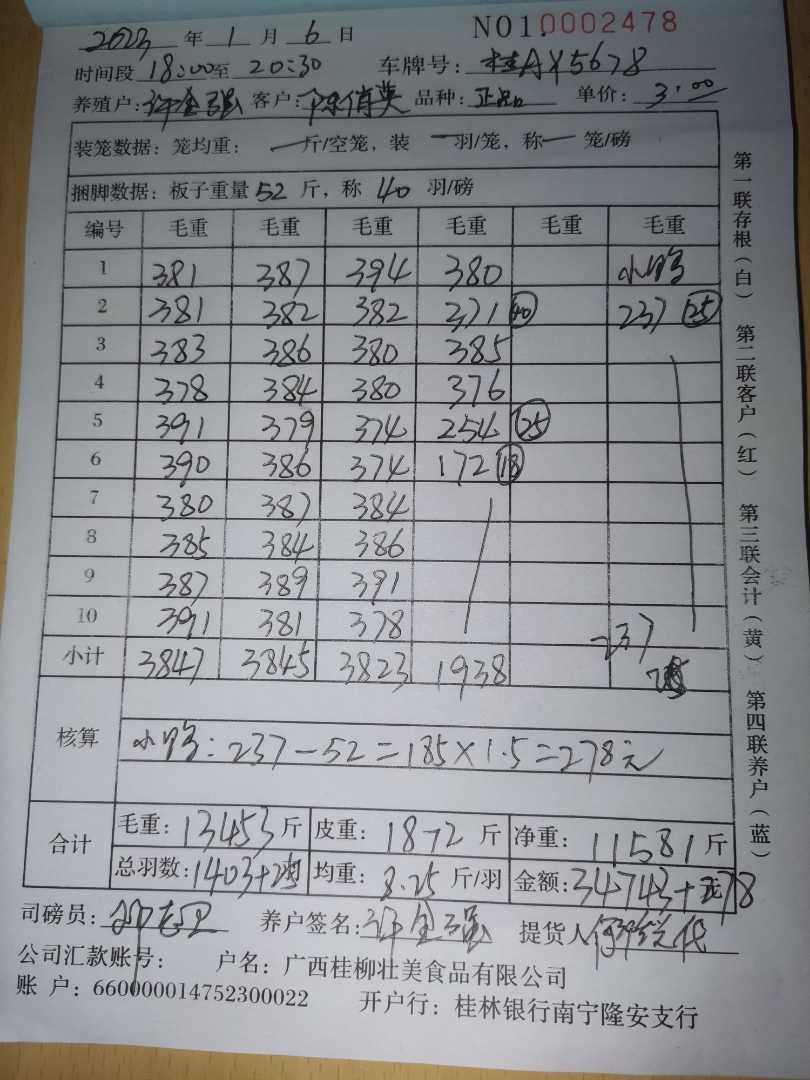 NO1.0002478
2023年1月6日
时间段18:00至20:30 车牌号:桂AX5678
养殖户:许金强 客户: 品种:正品 单价:3.00
装笼数据:笼均重:—斤/空笼,装—羽/笼,称—笼/磅
捆脚数据:板子重量52斤,称40羽/磅
编号 毛重 毛重 毛重 毛重 毛重 毛重
1 381 387 394 380 小鸭
2 381 382 382 371 40 237 25
3 383 386 380 385
4 378 384 380 376
5 391 379 374 254 25
6 390 386 374 172 18
7 380 387 384
8 385 384 386
9 387 389 391
10 391 381 378
小计 3847 3845 3823 1938 237
核算 小鸭:237-52=185×1.5=278元
合计 毛重:13453斤 皮重:1872斤 净重:11581斤
总羽数:1403+25 均重:8.25斤/羽 金额:34743+278
司磅员: 养户签名:许金强 提货人
公司汇款账号: 户名:广西桂柳壮美食品有限公司
账 户:660000014752300022 开户行:桂林银行南宁隆安支行
第一联存根(白) 第二联客户(红) 第三联会计(黄) 第四联养户(蓝)